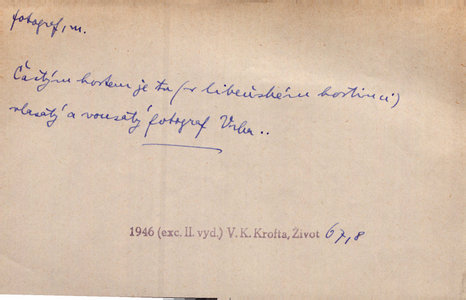 fotograf, m.
Častým hostem je tu (v libeňském hostinci)
vlasatý a vousatý fotograf Vrba..
1946 (exc. II. vyd.) V. K. Krofta, Život 67,8